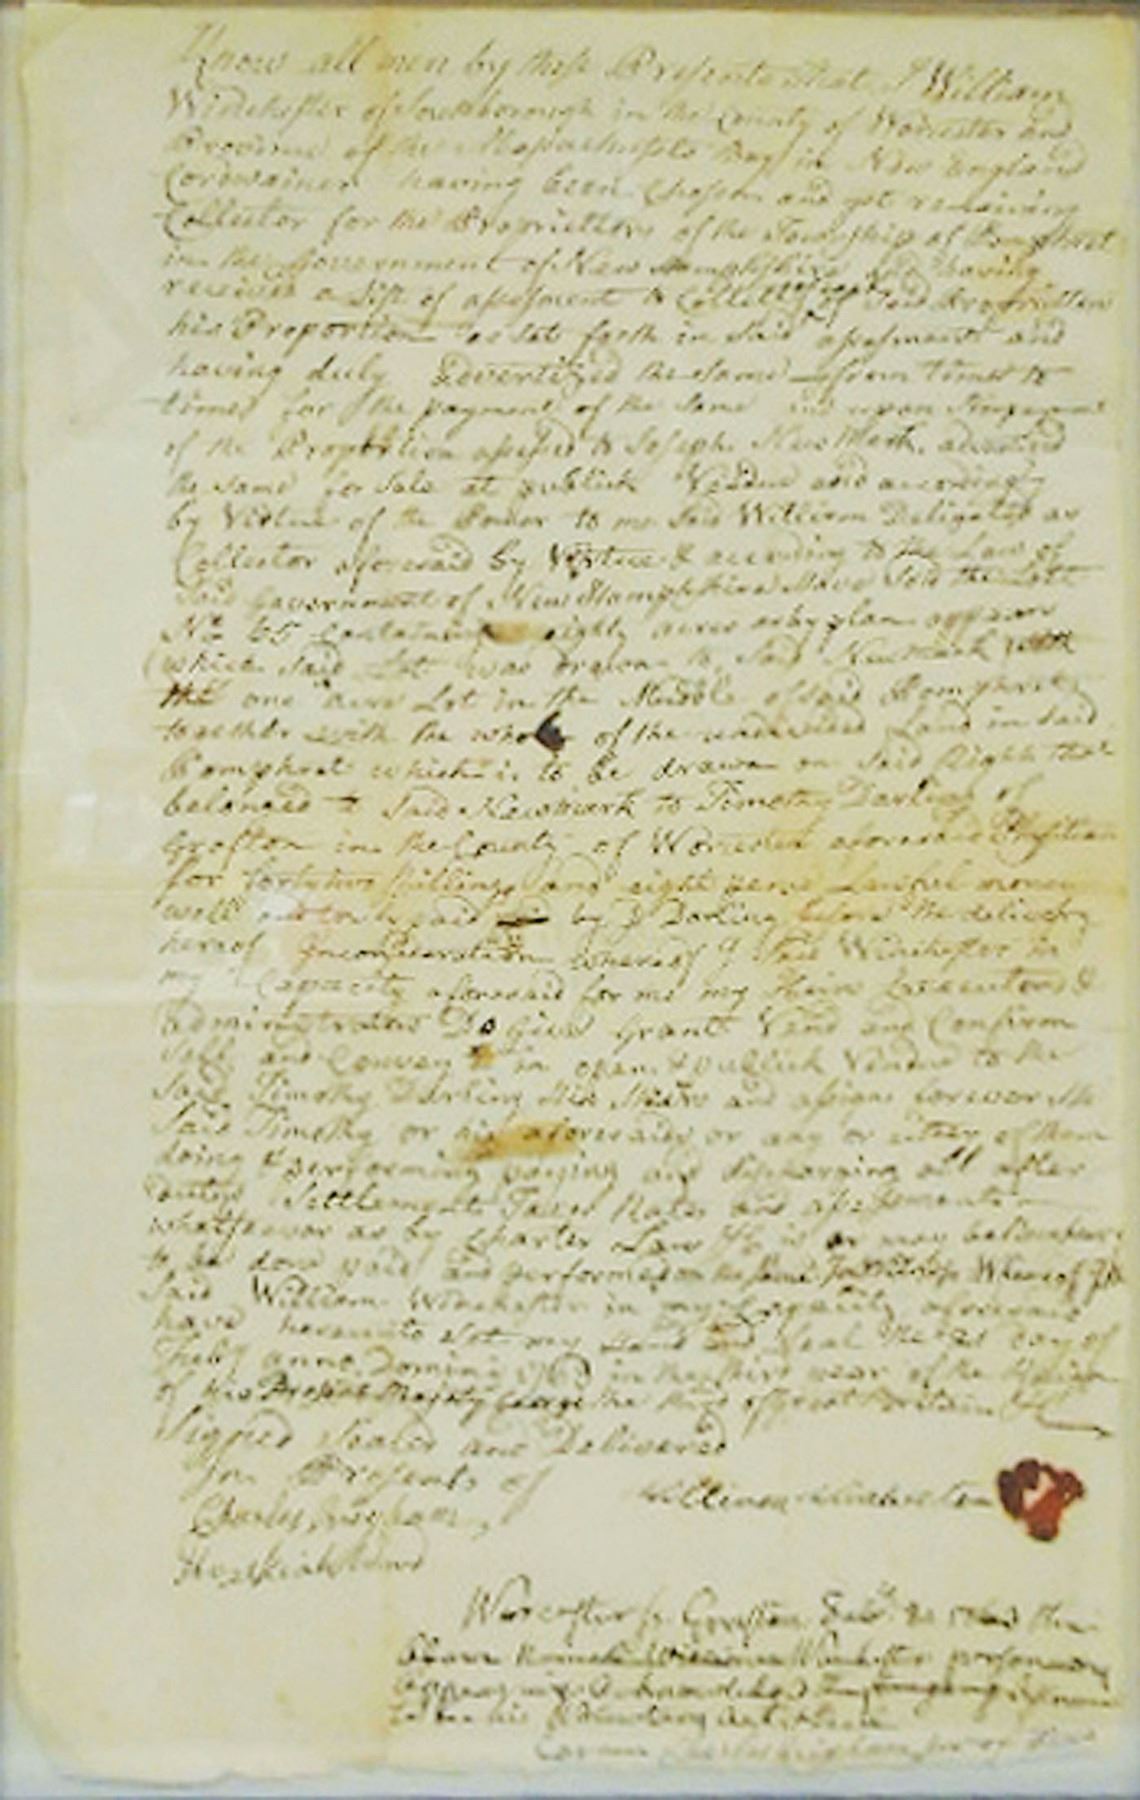 Know all men by these Presents that I William
Winchester of Southborough in the County of Worcester and
Province of the Massachusetts Bay in New England
Cordwainer having been Chosen and yet remaining
Collector for the Proprietors of the Township of Pomphret
in the Government of New Hampshire and having
received a List of assesment to Collect of Said Proprietors
his Proportion as set forth in said assesment and
having duly advertized the same from time to
time for the payment of the same and upon
of the Proportion assessed to Joseph Newmark advertised
the same for Sale at publick Vendue and accordingly
by Virtue of the Power to me Said William Deligated as
Collector aforesaid by Vertue & according to the Law of
Said Government of New Hampshire Have Sold the Lott
No 65 containing eighty acres as by plan appears
which said Lot was drawn to Said Newmark with
the one acre Lot in the Middle of said Pomphret
together with the whole of the undivided Land in said
Pomphret which is to be drawn on Said Right that
belonged to Said Newmark to Timothy Darling of
Grafton in the County of Worcester aforesaid Physitian
for forty two shillings and eight pence Lawful money
well and truly paid by sd Darling before the delivery
hereof Inconsideration whereof I Said Winchester in
my Capacity aforesaid for me my Heirs Executors &
administrators Do Give Grant Vend and Confirm
Sell and Convey in open & publick Vendue to the
Said Timothy Darling His Heirs and assigns forever the
Said Timothy or his aforesaids or any or either of them
doing & performing paying and discharging all after
dutys Settlements Taxes Rates and assessments
whatsoever as by Charter Law &c is or may be
to be done paid and performed on the same In Witness Whereof I the
Said William Winchester in my Capacity aforesaid
have hereunto set my hand and Seal the 21 day of
Feby anno Domini in the year of the Reign
of his Present Majesty George the third of Great Britain &c
Signed Sealed and Delivered
In Presents of
William Winchester
Charles Brigham
Hezekiah Ward
Worcester ss Grafton Feby the
above Named William Winchester personally
appearing Acknowledged
to be his Voluntary Act
Charles Brigham Jus of Peace